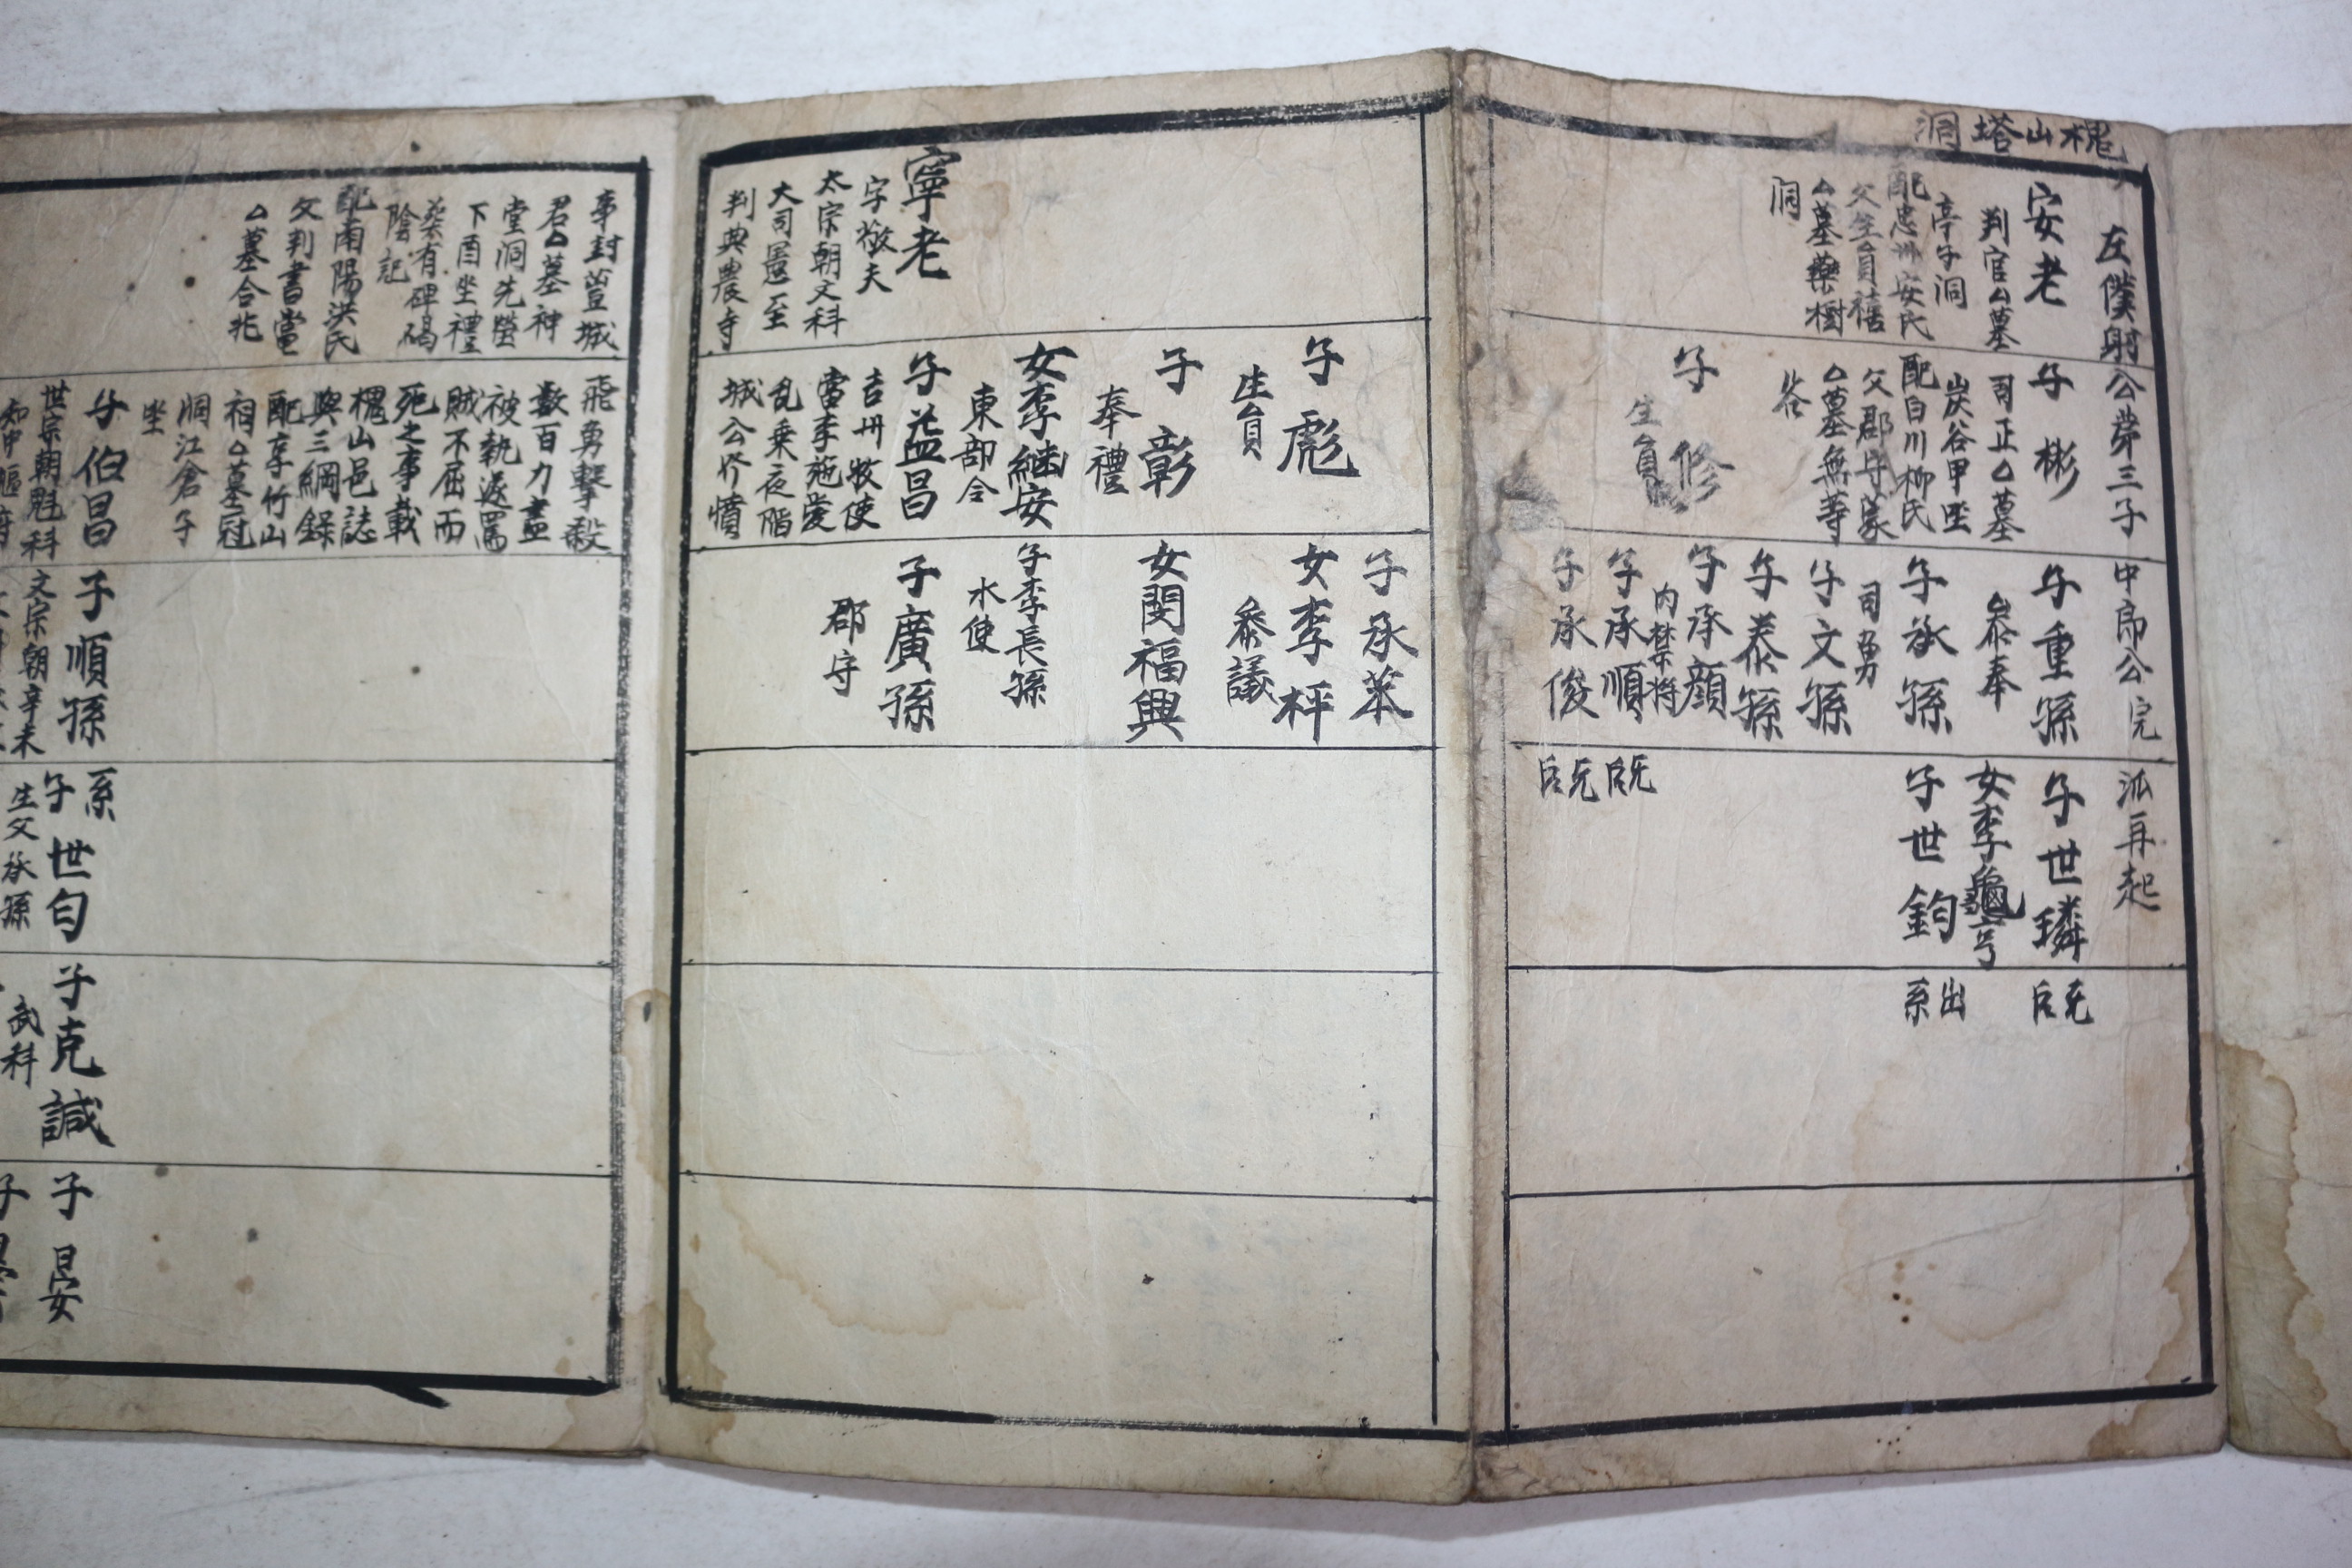 槐山塔洞
左僕射公第三子中郎公完派再起
安老
判官△墓
亭子洞
配忠州安氏
父生員禧
△墓藥樹
洞
子彬
司正△墓
炭谷甲坐
配白川柳氏
父郡守蒙
△墓無等
谷
子修
生員
子重孫
參奉
子承孫
司勇
子文孫
子泰孫
子承顔
内禁将
子承順
子承俊
子世璘
女李龜亨
子世鈞
后无
后无
后无
出系
子彪
生員
子彰
奉禮
女李継安
東部令
子益昌
吉州牧使
當李施愛
乱乗夜階
城公忄憤
子承
女李枰
參議
女閔福興
子李長孫
水使
子廣孫
郡守
寧老
字敬夫
太宗朝文科
大司憲至
判典農寺
事封豈城
君△墓神
堂洞先塋
下酉坐禮
葬有碑碣
陰記
配南陽洪氏
父判書當
△墓合兆
飛勇擊殺
數百力盡
被執遂罵
賊不屈而
死之事載
槐山邑誌
與三綱錄
配享竹山
祠△墓冠
洞江倉子
坐
子伯昌
世宗朝魁科
知中樞府
子順孫
文宗朝辛未
系
子世匀
生父承孫
子克諴
武科
子晏
子